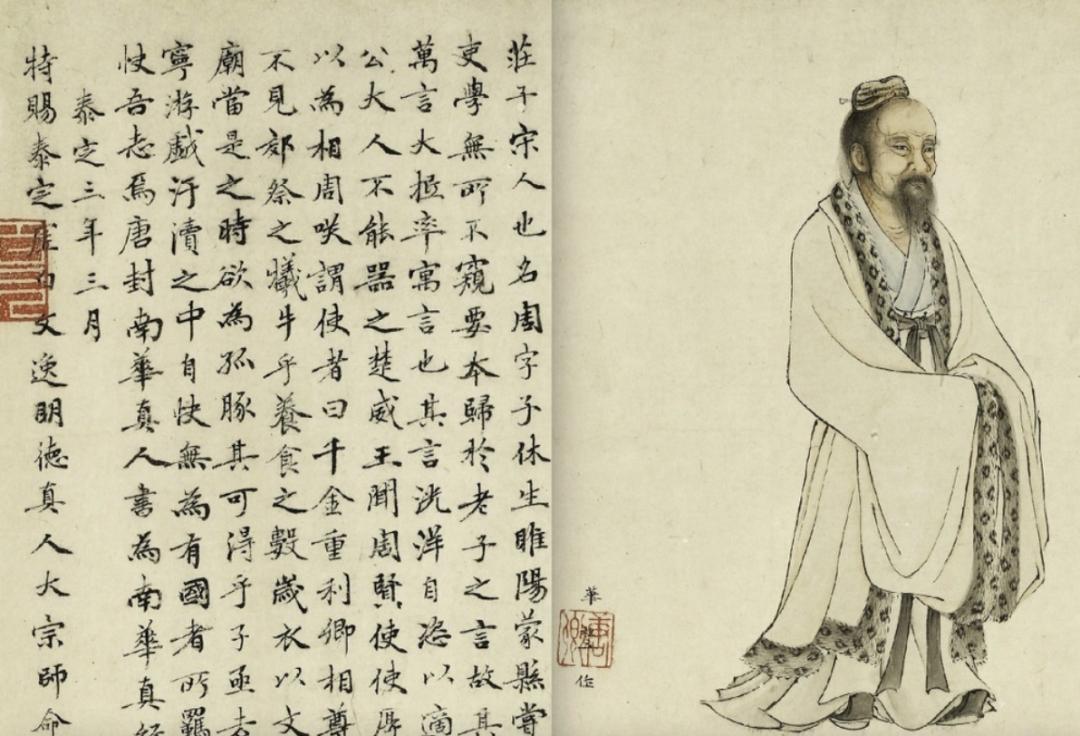 華
作
莊子宋人也名周字子休生睢陽蒙縣嘗
吏學無所不窺要本歸於老子之言故其
萬言大抵率寓言也其言洸洋自恣以適
公大人不能器之楚威王聞周賢使使厚
以為相周咲謂使者曰千金重利卿相尊
不見郊祭之犧牛乎養食之數歲衣以文
廟當是之時欲為孤豚其可得乎子亟去
寧游戲汙瀆之中自快無為有國者所羈
快吾志焉唐封南華真人書為南華真經
泰定三年三月
特賜泰定虛白文逸明德真人大宗師命